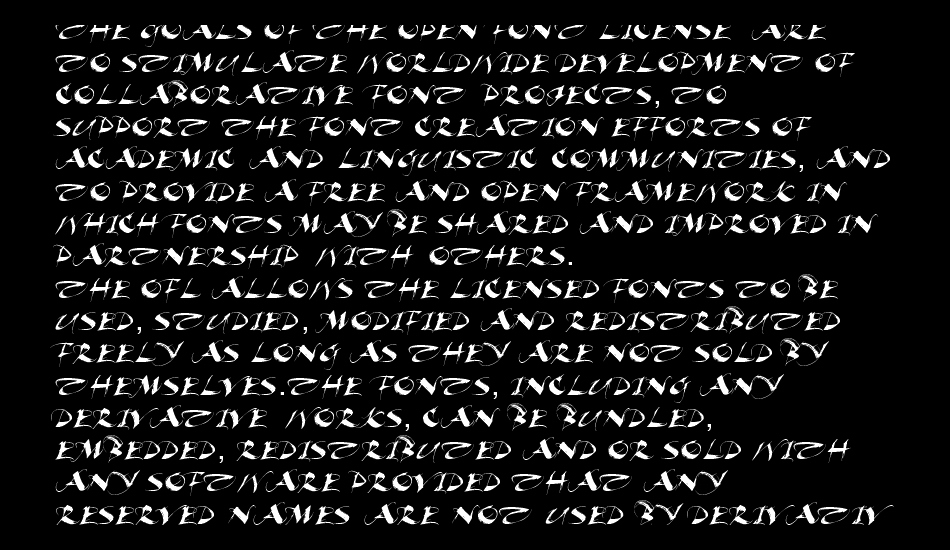 THE GOALS OF THE OPEN FONT LICENSE ARE
TO STIMULATE WORLDWIDE DEVELOPMENT OF
COLLABORATIVE FONT PROJECTS, TO
SUPPORT THE FONT CREATION EFFORTS OF
ACADEMIC AND LINGUISTIC COMMUNITIES, AND
TO PROVIDE A FREE AND OPEN FRAMEWORK IN
WHICH FONTS MAY BE SHARED AND IMPROVED IN
PARTNERSHIP WITH OTHERS.
THE OFL ALLOWS THE LICENSED FONTS TO BE
USED, STUDIED, MODIFIED AND REDISTRIBUTED
FREELY AS LONG AS THEY ARE NOT SOLD BY
THEMSELVES.THE FONTS, INCLUDING ANY
DERIVATIVE WORKS, CAN BE BUNDLED,
EMBEDDED, REDISTRIBUTED AND OR SOLD WITH
ANY SOFTWARE PROVIDED THAT ANY
RESERVED NAMES ARE NOT USED BY DERIVATIV